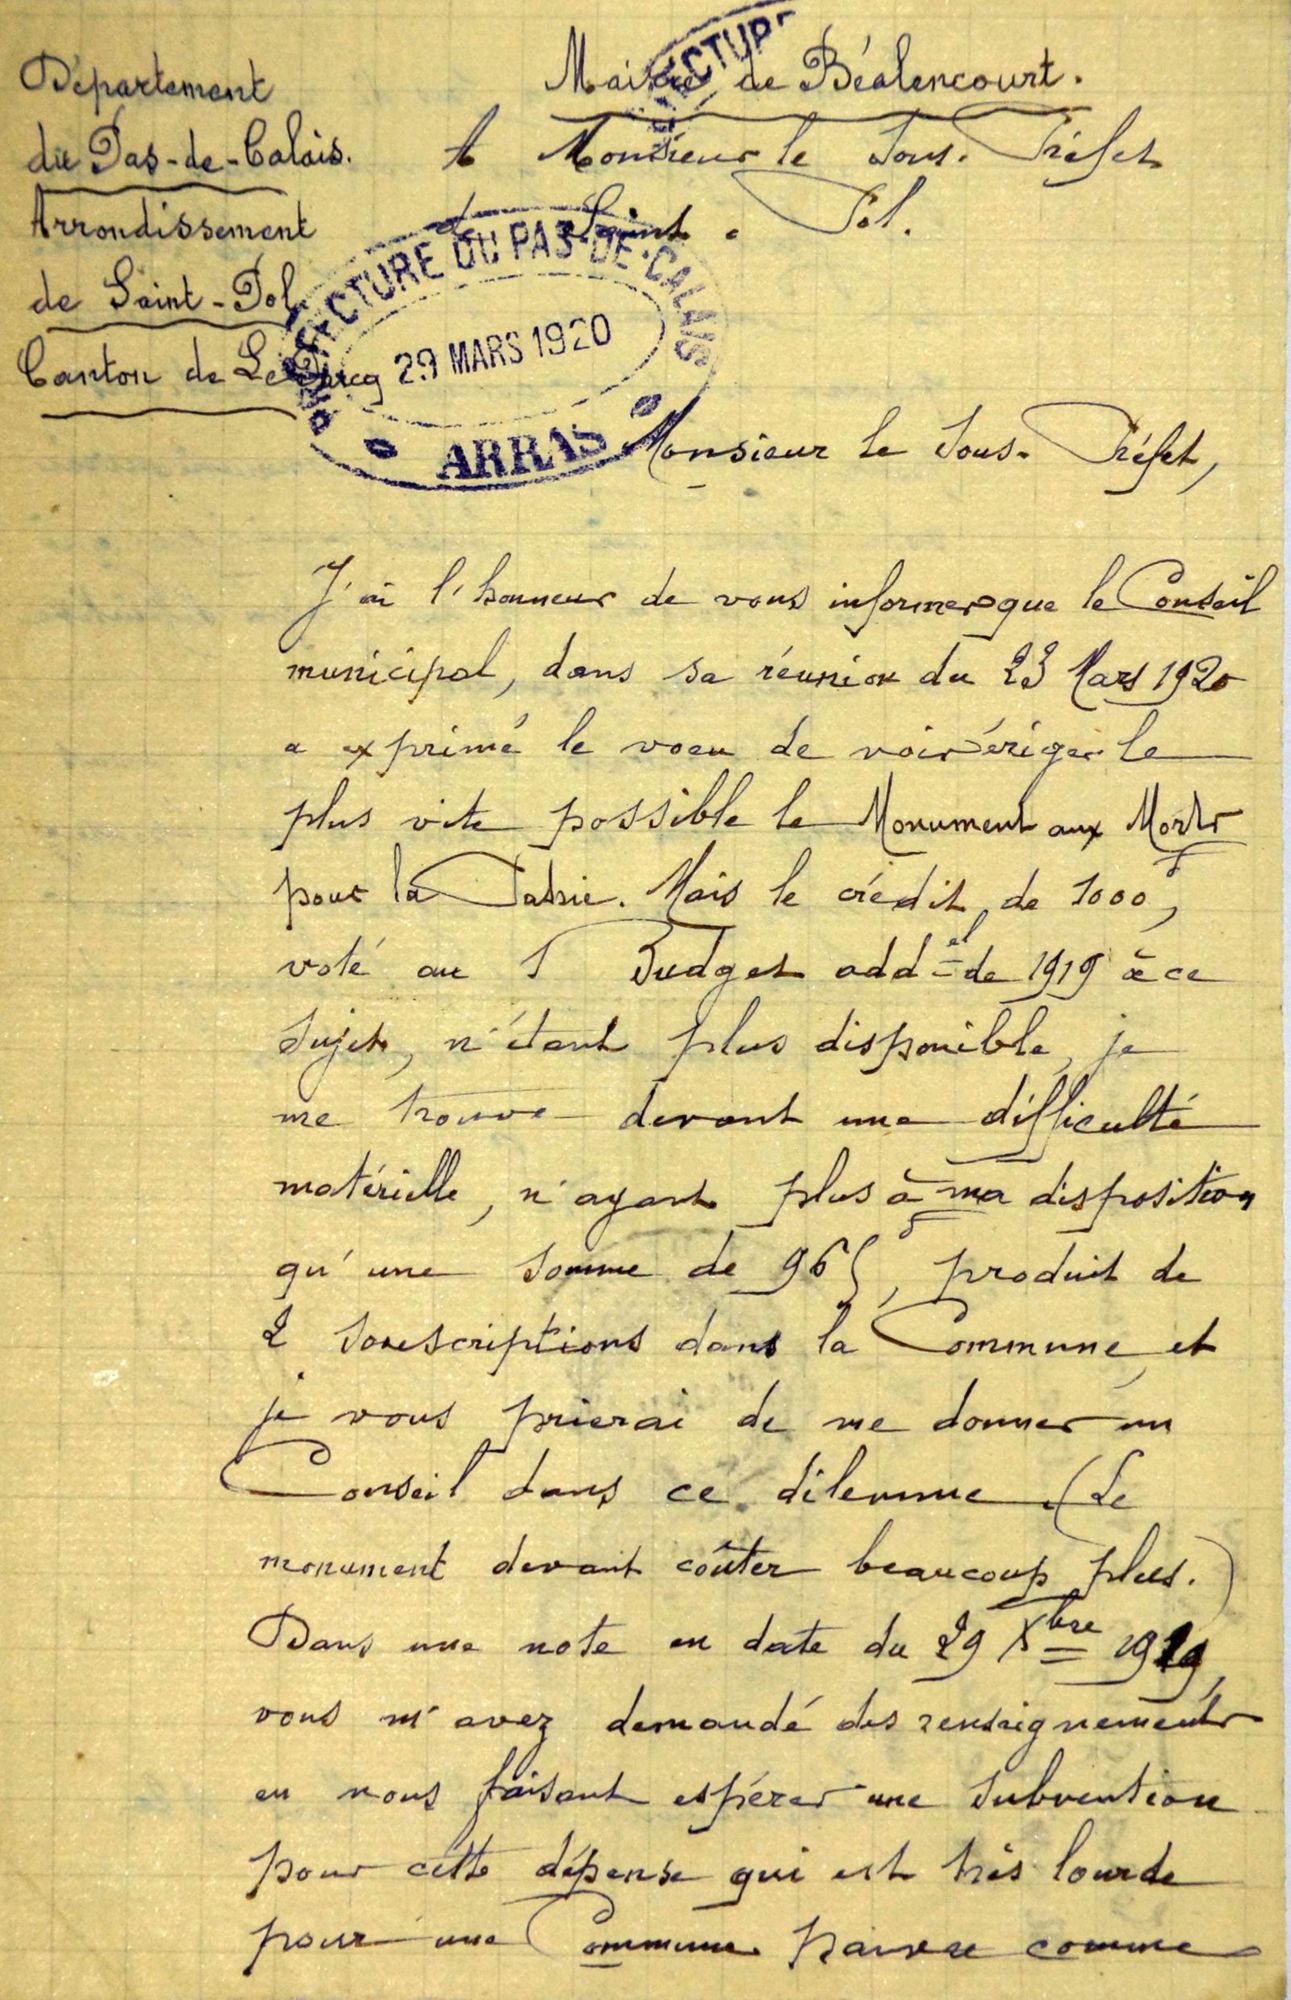 Mairie de Béalencourt.
Département
du Pas-de-Calais.
Arrondissement
de Saint-Pol
Canton de Le Parcq
A Monsieur le Sous-Préfet
de Saint-Pol.
PRÉFECTURE DU PAS-DE-CALAIS
29 MARS 1920
ARRAS
Monsieur le Sous-Préfet,
J'ai l'honneur de vous informer que le Conseil
municipal, dans sa réunion du 23 Mars 1920
a exprimé le voeu de voir ériger le
plus vite possible le Monument aux Morts
pour la Patrie. Mais le crédit de 1000f,
voté au Budget addel de 1919 à ce
sujet, n'étant plus disponible, je
me trouve devant une difficulté
matérielle, n'ayant plus à ma disposition
qu'une somme de 965f, produit de
2 souscriptions dans la Commune, et
je vous prierai de me donner un
Conseil dans ce dilemme. (Le
monument devant coûter beaucoup plus.)
Dans une note en date du 29 Xbre 1919,
vous m'avez demandé des renseignements
en nous faisant espérer une subvention
pour cette dépense qui est très lourde
pour une Commune pauvre comme